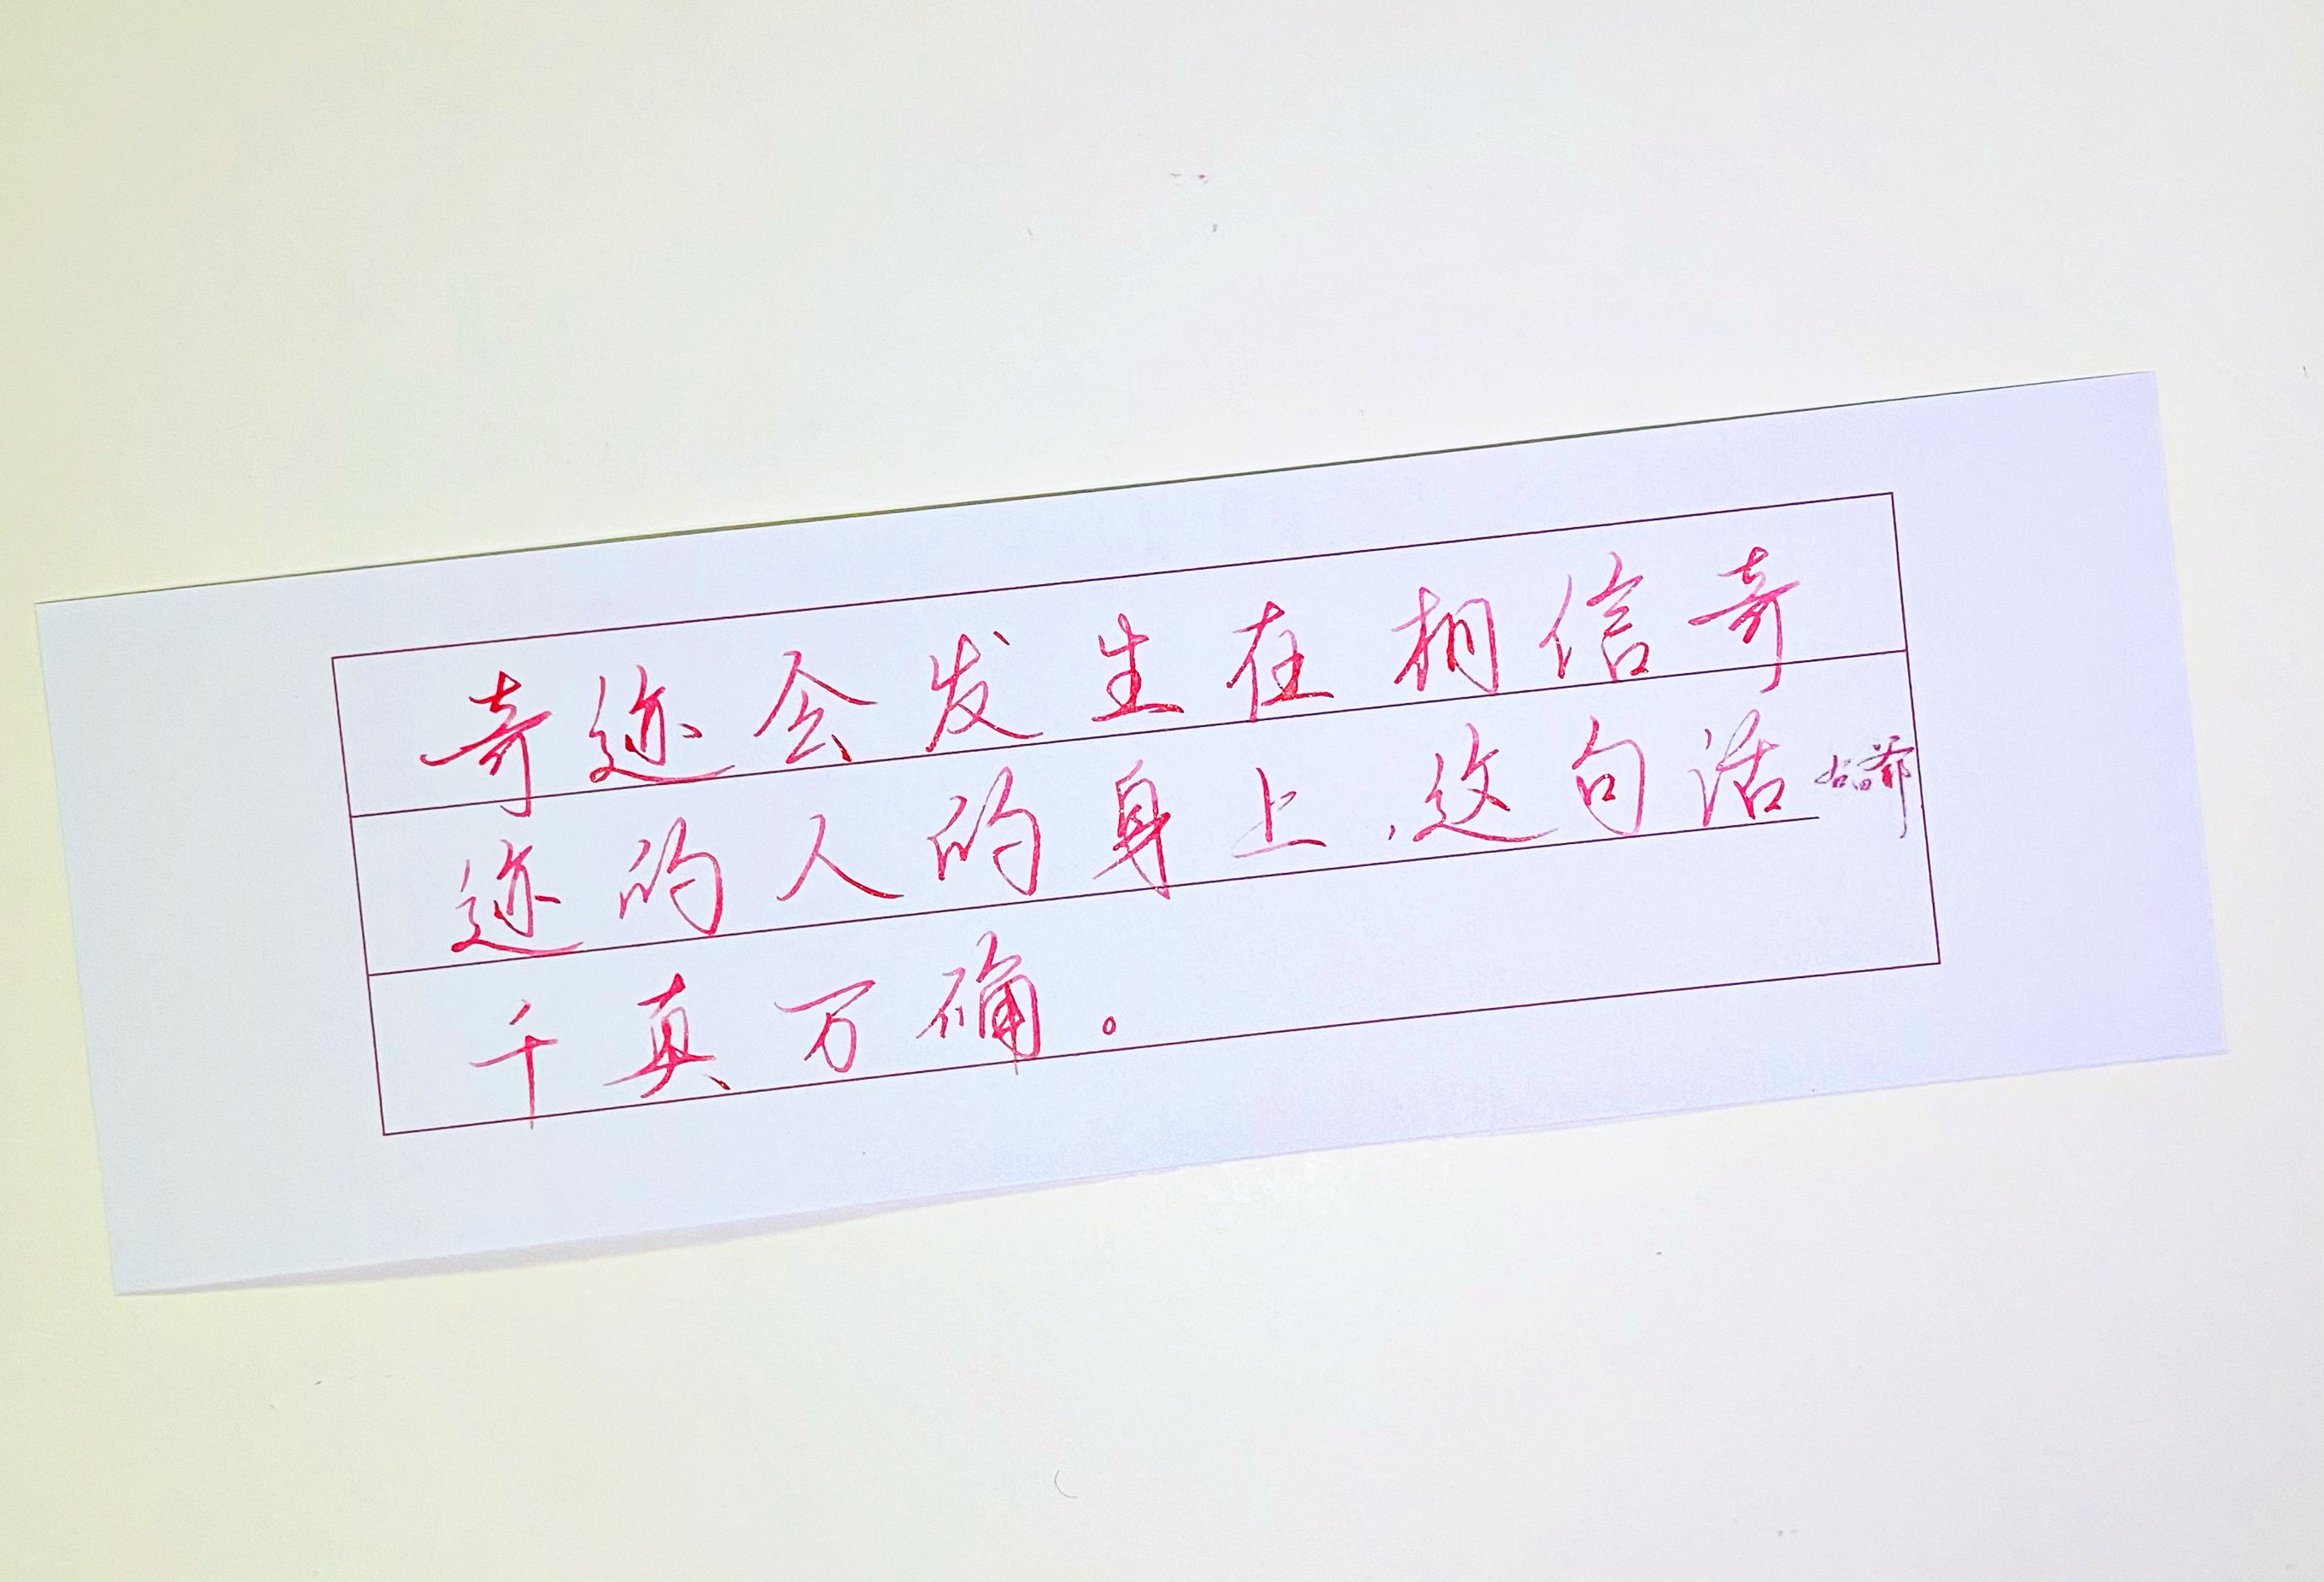 奇迹会发生在相信奇
迹的人的身上,这句话
千真万确。